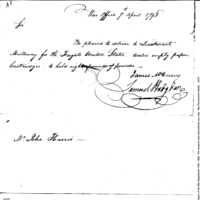 War Office 7th April 1798
Sir
Be pleased to deliver to Lieutenant
Mullowny for the Frigate United States twelve empty paper
Cartridges to hold eight pounds of powder.
James McHenry
Samuel Hodgdon
Mr John Harris